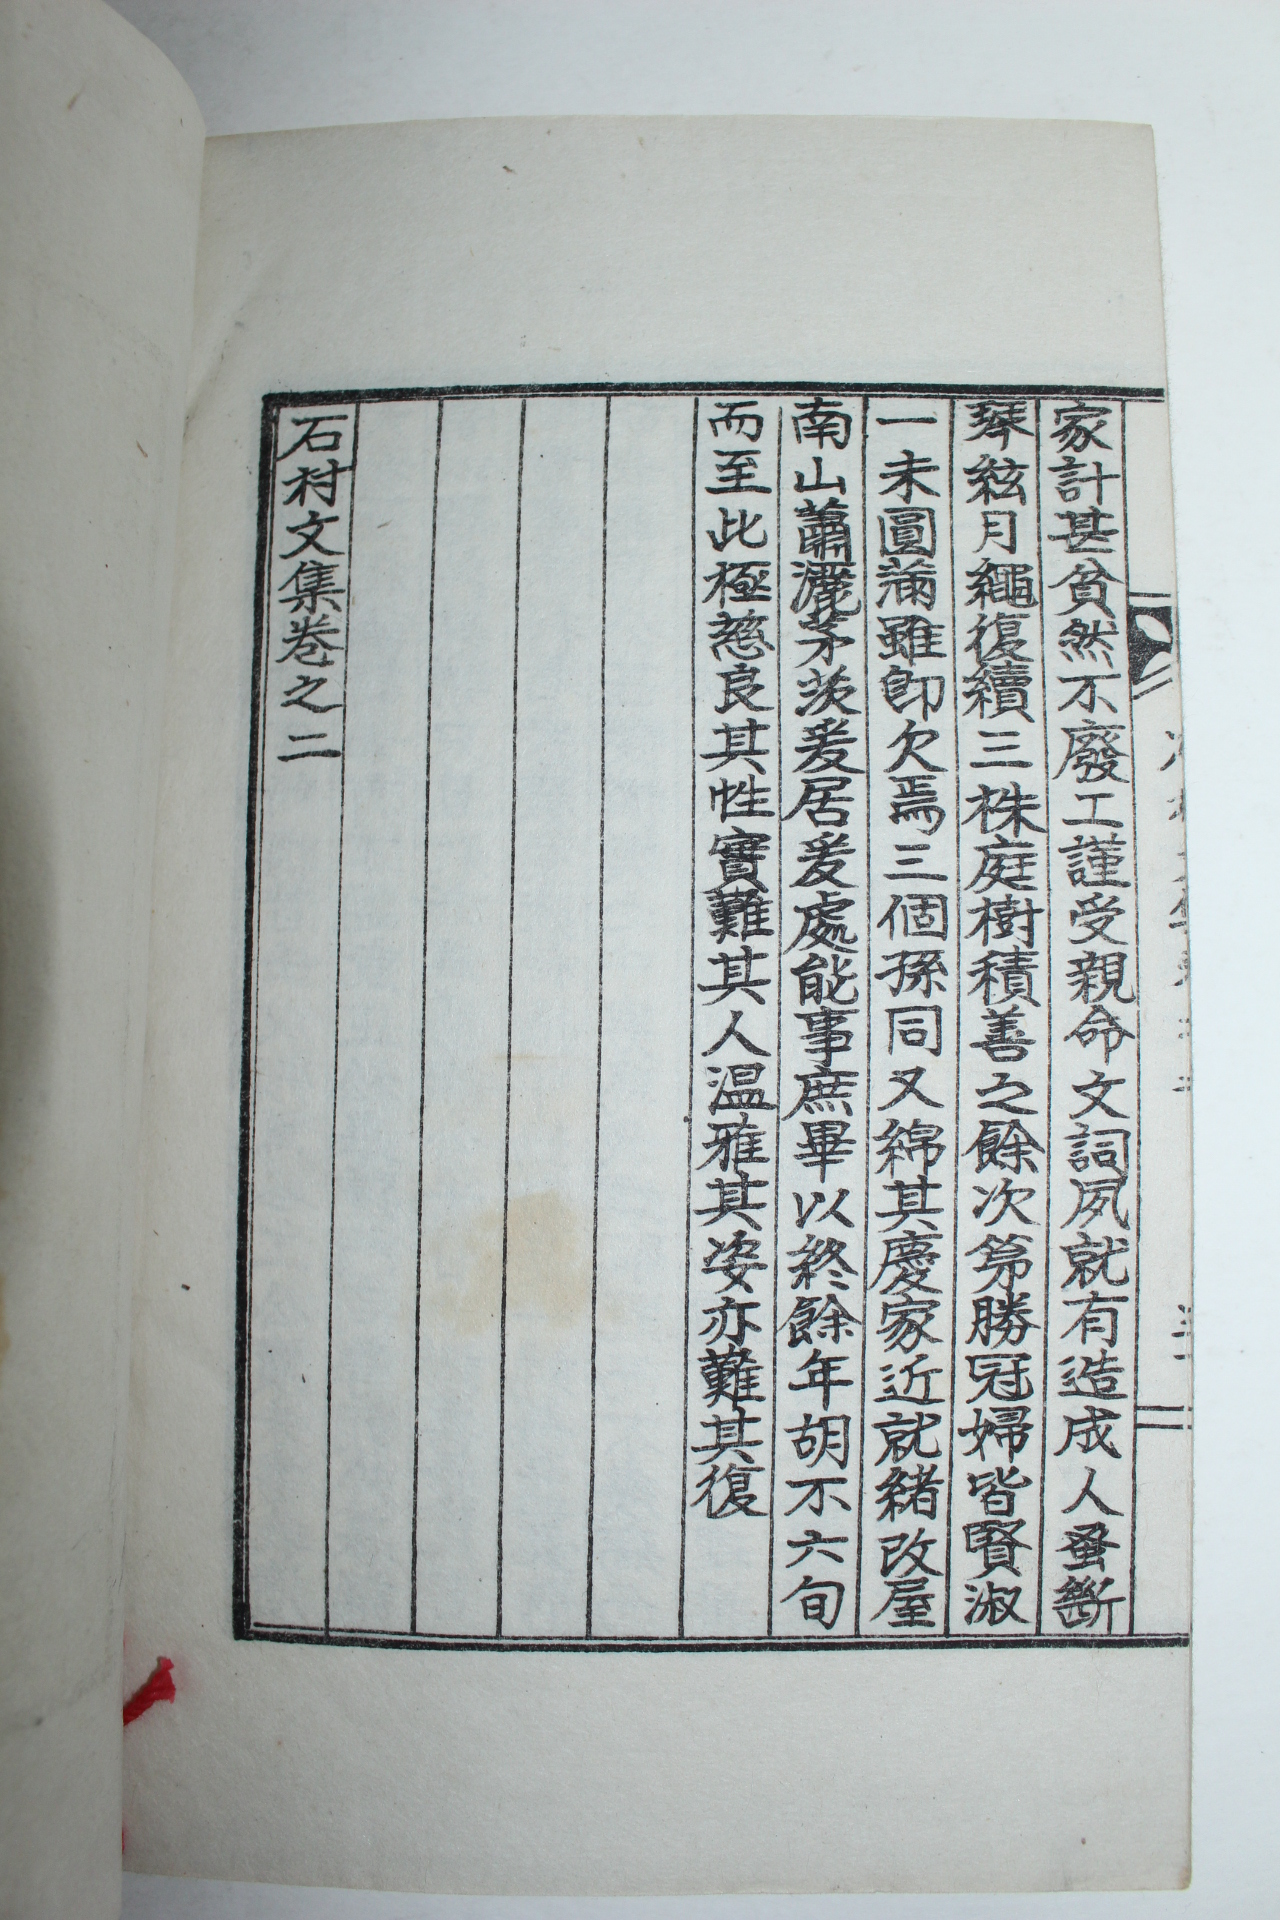 家計甚貧然不廢工謹受親命文詞夙就有造成人蚤斷
琴絃月繩復續三株庭樹積善之餘次第勝冠婦皆賢淑
一未圓滿雖卽欠焉三個孫同又綿其慶家近就緖改屋
南山蕭灑茅茨爰居爰處能事庶畢以終餘年胡不六旬
而至此極慈良其性實難其人温雅其姿亦難其復
石村文集卷之二